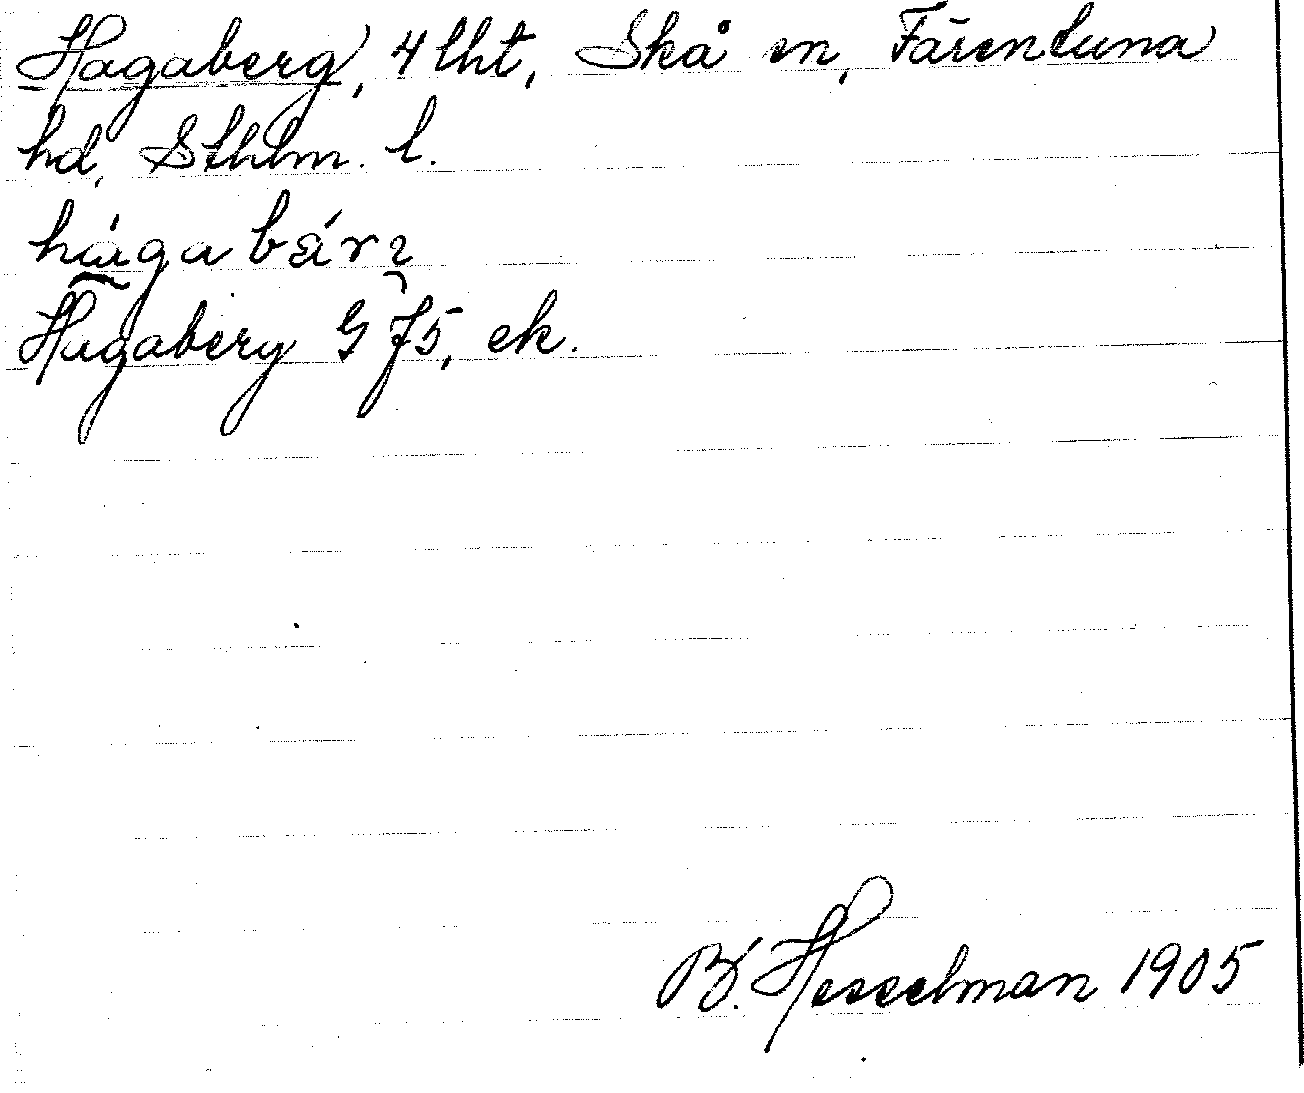 Hagaberg, 4 lht, Skå sn, Färentuna
hd, Sthlm. l.
hágabär
Hagaberg G J5, ek.
B. Hesselman 1905